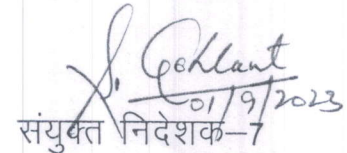 S. Gehlaut
01/9/2023
संयुक्त निदेशक–7